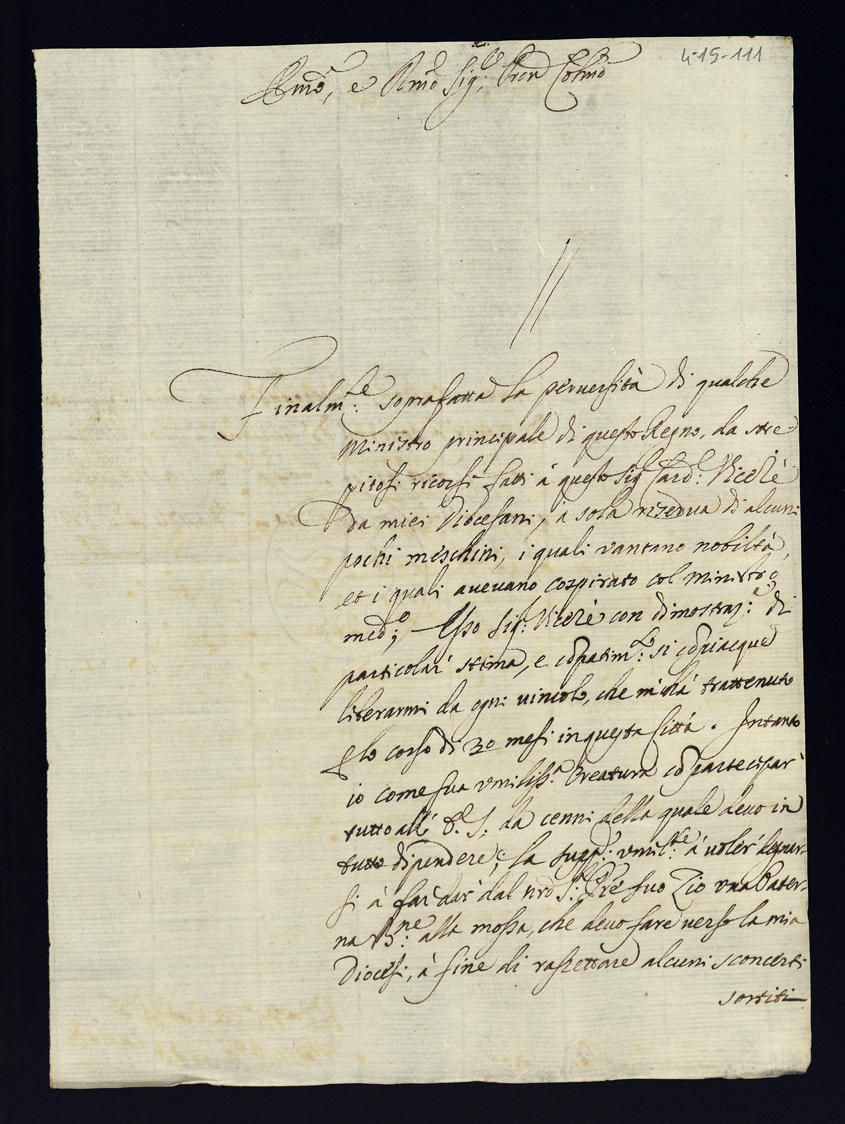 4-15-111
Illmo, e Rmo Sig.re Pron Colmo
Finalm.te soprafatta la peruersità di qualche
Ministro principale di questo Regno, da stre
pitosi ricorsi fatti á questo Sig.r Card.l Viceré
da miei Diocesani, a sola riserua di alcuni
pochi meschini, i quali vantano nobiltà,
et i quali aueuano cospirato col Ministro
med.o; Esso Sig.r Viceré con dimostraz.e di
particolar' stima, e cōpatim.to si cōpiacque
liberarmi da ogni vincolo, che m'há trattenuto
p lo corso di 30 mesi in questa Città. Intanto
io come sua vmiliss.a Creatura cō partecipar'
tutto all' V.S. da cenni della quale deuo in
tutto dipendere, la supp.co vmil.te á voler' degnar-
si á far dar' dal nrō S. Pre suo Zio vna Pater-
na B.ne alla mossa, che deuo fare verso la mia
Diocesi, á fine di rassettare alcuni sconcerti
sortiti